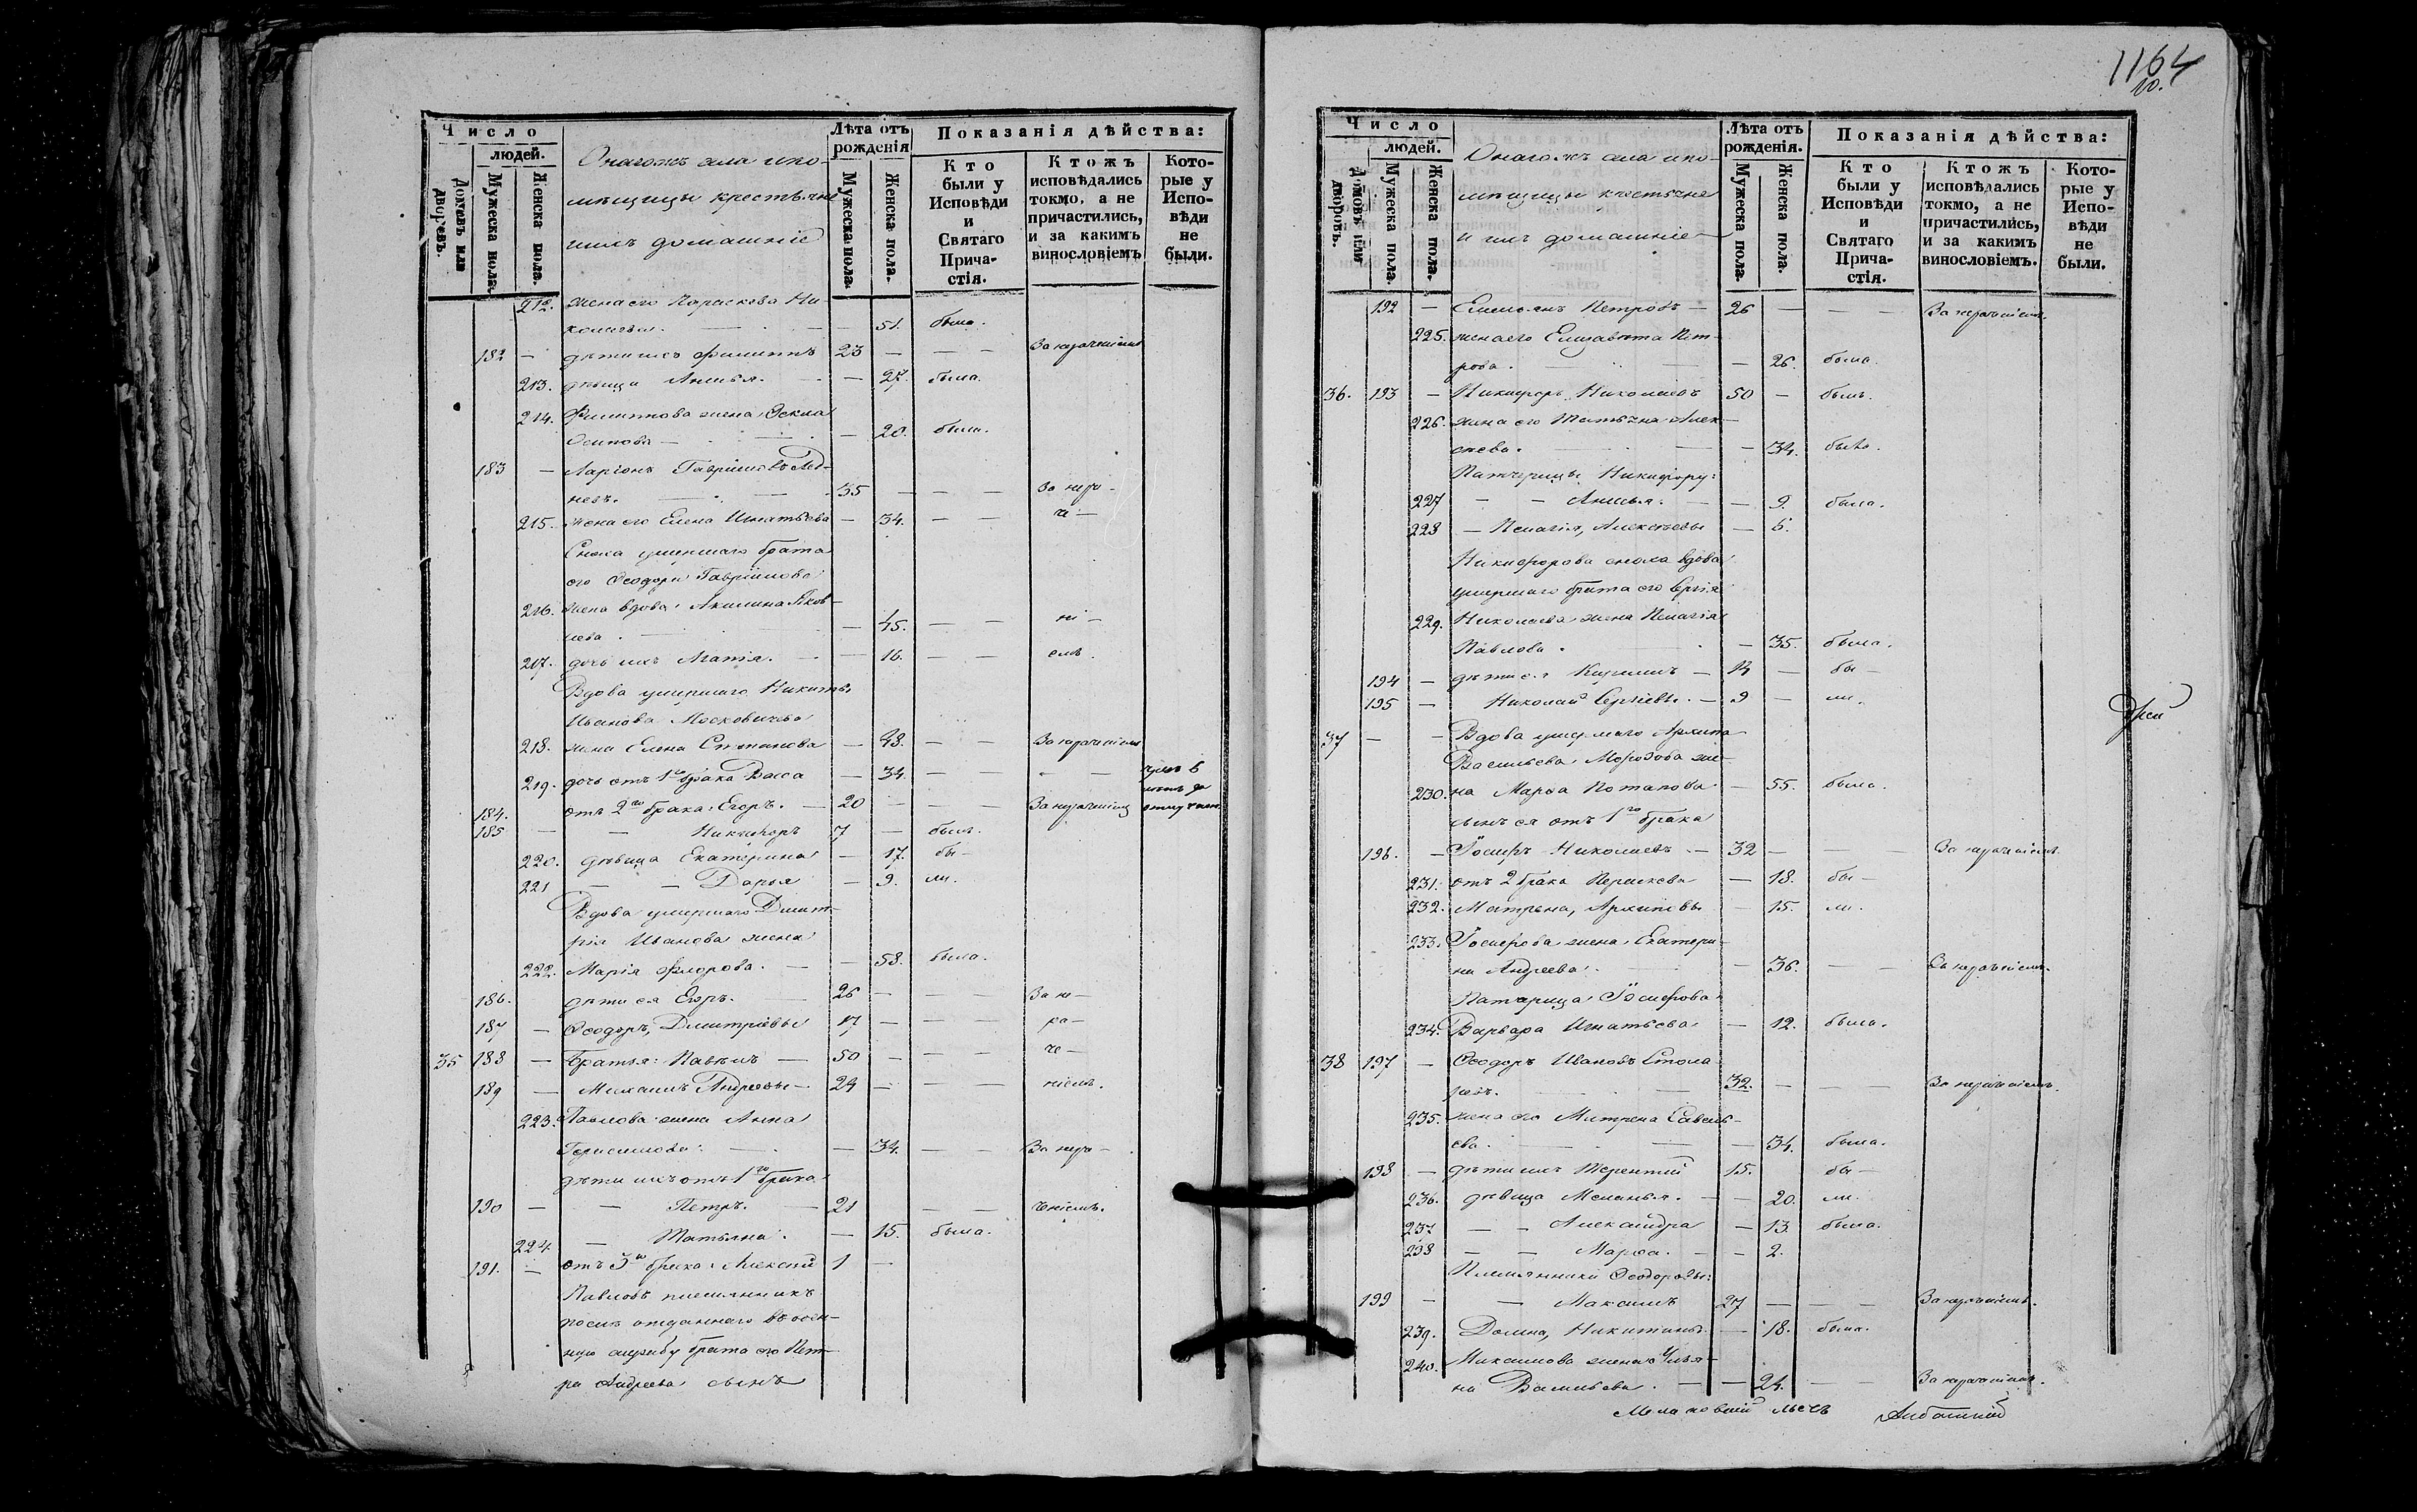 Число
людей.
Домовъ или дворовъ.
Мужеска пола.
Женска пола.
Онагожъ села и по-
мѣщицы крестьяне
и ихъ домашніе
Лѣта отъ рожденія
Мужеска пола.
Женска пола.
Показанія дѣйства:
Кто были у Исповѣди и Святаго Прича-стія.
Ктожъ исповѣдались токмо, а не причастились, и за какимъ винословіемъ
Кото-рые у Испо-вѣди не были.
212. жена его Параскева Ни-
колаева. — — 51. была.
182 — дѣти ихъ Филиппъ 23 — — — За нераченіемъ
213. дѣвица Анисья. — 27. была.
214. Филиппова жена Фекла
Осипова — — 20. была.
183 — Ларіонъ Гавриловъ
35 — — — За нера-
215. жена его Елена Игнатьева — 34. — — че-
Сноха умершаго брата
его Ѳеодора Гаврилова
216. жена вдова Акилина Яков-
лева. — 45. — — ні-
217. дочь ихъ Агапія. — 16. — — емъ.
Вдова умершаго Никиты
Иванова Московичева
218. жена Елена Степанова — 48. — — За нераченіемъ
219. дочь отъ 1го брака Васса — 34. — — — —
184. отъ 2го брака: Егоръ. — 20 — — — За нераченіемъ
185 — — Никифоръ 7 — былъ.
220. дѣвица Екатерина — 17. бы-
221 — — Дарья — 9. ли.
Вдова умершаго Димит-
рія Иванова жена
222. Марія Флорова. — — 58. была.
186. дѣти ея Егоръ. — 26 — — — За не-
187 — Ѳеодоръ, Димитріевы 17 — — — ра-
35 188 — Братья: Павелъ — 50 — — — че-
189 — Михаилъ Андреевы — 24 — — — ніемъ.
223. Павлова жена Анна
Герасимова: — — 34. — — За нера-
дѣти ихъ отъ 1го брака
190 — — Петръ. — 21 — — ченіемъ.
224 — Татьяна. — 15. была.
191. — отъ 3го брака: Алексій 1 —
Павловъ племянникъ
отданнаго въ воен-
ную службу брата его Пет-
ра Андреева сынъ
1164
10.
Число
людей.
Домовъ или дворовъ.
Мужеска пола.
Женска пола.
Онагожъ села и по-
мѣщицы крестьяне
и ихъ домашніе
Лѣта отъ рожденія.
Мужеска пола.
Женска пола.
Показанія дѣйства:
Кто были у Исповѣди и Святаго Прича-стія.
Ктожъ исповѣдались токмо, а не причастились, и за какимъ винословіемъ.
Кото-рые у Испо-вѣди не были.
192 — Емельянъ Петровъ — 26 — — — За нераченіемъ.
225. жена его Елизавета Пет-
рова. — — 26. была.
36. 193 — Никифоръ Николаевъ 50 — былъ.
226. жена его Татьяна Алек-
сеева. — — 34. была.
Патчерицы Никифору:
227 — — Анисья. — — 9. была.
228 — Пелагія, Алексѣевы — 6.
Никифорова сноха вдова
умершаго брата его Сергія
229. Николаева жена Пелагія
Павлова. — 35. была.
194 — дѣти ея Кириллъ — 14 — бы-
195 — Николай Сергіевы. — 9 — ли.
37 — — Вдова умершаго Архипа
Васильева Морозова же-
230. на Марѳа Потапова — 55. была.
сынъ ея отъ 1го брака
196. — Іосифъ Николаевъ — 32 — — — За нераченіемъ
231. отъ 2 брака Параскева — 18. бы-
232. Матрена, Архиповы — 15. ли.
233. Іосифова жена Екатери-
на Андреева. — — 36. — — За нераченіемъ.
Патчерица Іосифова
234. Варвара Игнатьева — 12. была.
38 197 — Ѳеодоръ Ивановъ Стола
ревъ. — — 32. — — — За нераченіемъ.
235. жена его Матрена Савель-
ева. — — 34. была.
198 — дѣти ихъ Терентій 15. бы-
236. дѣвица Меланья. — — 20. ли.
237 — — Александра — 13. была.
238 — — Марѳа. — — 2.
Племянники Ѳеодоровы:
199 — — Максимъ 27 — — — За нераченіемъ.
239. Домна, Никитины — 18. была.
240. Максимова жена Улья-
на Васильева. — — 24. — — За нераченіемъ.